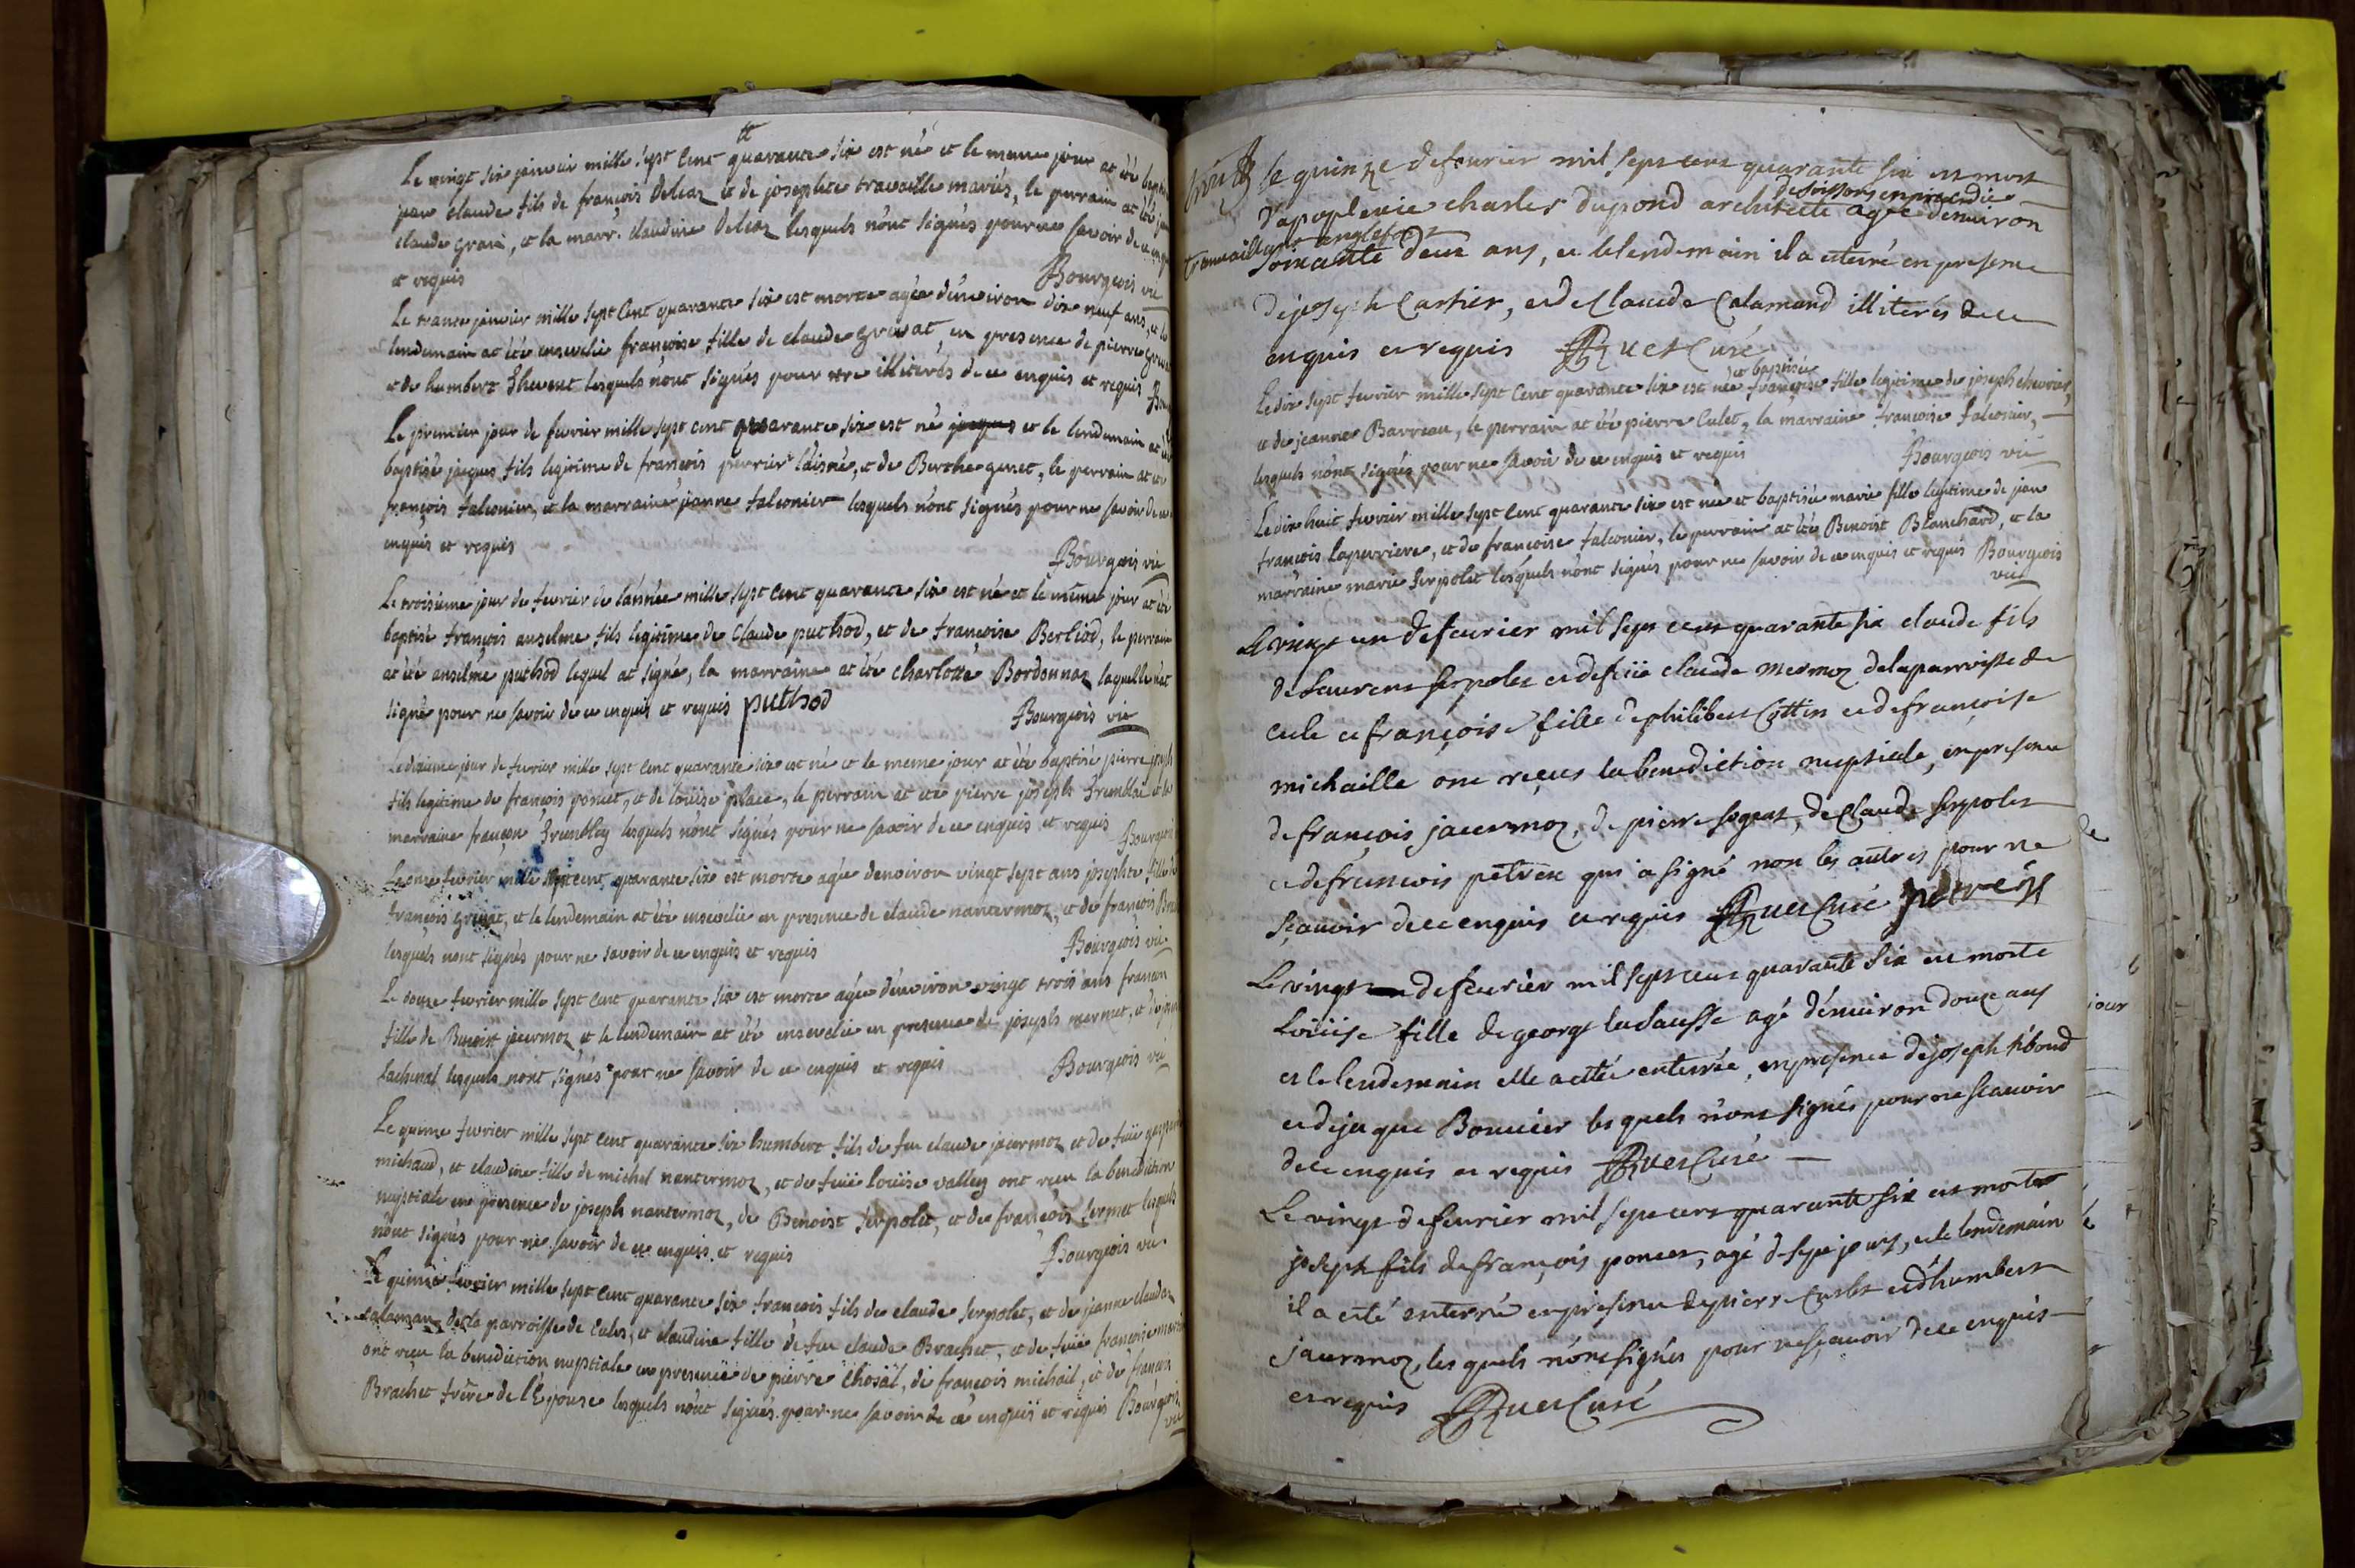 Le vingt six janvier mille sept cent quarante six est né et le meme jour at été
jean claude fils de françois deleaz et de josephte travaille mariés, le perrain at été
claude grain, et la marr. claudine deleaz lesquels n'ont signés pour ne savoir de ce
et requis
Bourgeois vic
Le trante janvier mille sept cent quarante six est morte agée d'environ dix neuf ans, et le
lendemain at été ensevelie françoise fille de claude gravat, en presence de pierre
et de humbert lesquels n'ont signés pour etre illiterés de ce enquis et requis
Le premier jour de fevrier mille sept cent quarante six est né et le lendemain at
baptisé jacques fils legitime de françois perrier l'aisné, et de Berthe genet, le perrain at été
françois falconier, et la marraine janne falconier lesquels n'ont signés pour ne savoir de ce
enquis et requis
Bourgeois vic
Le troisieme jour de fevrier de l'année mille sept cent quarante six est né et le même jour at été
baptisé françois anselme fils legitime de Claude puthod, et de françoise Berliod, le perrain
at été anselme puthod lequel at signé, la marraine at été charlotte Bordonnaz laquelle n'at
signé pour ne savoir de ce enquis et requis puthod
Bourgeois vic
Le dixieme jour de fevrier mille sept cent quarante six est né et le meme jour at été baptisé pierre joseph
fils legitime de françois poncet, et de louise place, le perrain at été pierre joseph et la
marraine françon lesquels n'ont signés pour ne savoir de ce enquis et requis Bourgeois
Le onze fevrier mille sept cent quarante six est morte agée denviron vingt sept ans josephte fille de
françois gravat, et le lendemain at été ensevelie en presence de claude nantermoz, et de françois
lesquels n'ont signés pour ne savoir de ce enquis et requis
Bourgeois vic
Le douze fevrier mille sept cent quarante six est morte agée d'environ vingt trois ans françon
fille de Benoist jacermoz et le lendemain at été ensevelie en presence de joseph mermet, et
lachenal lesquels n'ont signés pour ne savoir de ce enquis et requis
Bourgeois vic
Le quinze fevrier mille sept cent quarante six humbert fils de feu claude jacermoz et de feüe
michaud, et claudine fille de michel nantermoz, et de feüe loüise valley ont reçu la benediction
nuptiale en presence de joseph nantermoz, de Benoist serpolet, et de françois sermet lesquels
n'ont signés pour ne savoir de ce enquis et requis
Bourgeois vic
Le quinze fevrier mille sept cent quarante six françois fils de claude serpolet, et de jeanne claudaz
calaman de la parroisse de culoz, et claudine fille de feu claude Brachet, et de feüe françoise
ont reçu la benediction nuptiale en presence de pierre chosal, de françois michail, et de françois
Brachet frère de l'Epouse lesquels n'ont signés pour ne savoir de ce enquis et requis Bourgeois
vic
le quinze de feuvrier mil sept cens quarante six est mort
de soissons en picardie
d'apoplexie charles dupond architecte agé denuiron
travaillant
soixante deux ans, et le lendemain il a eterré en presence
de joseph Carrier, et de Claude Calamand illiterés de ce
enquis et requis Curé
et baptisée
Le dix sept fevrier mille sept cent quarante six est née françoise fille legitime de joseph chevrier,
et de jeanne Barreau, le perrain at été pierre Culet, la marraine françoise falconier,
lesquels n'ont signés pour ne savoir de ce enquis et requis
Bourgeois vic
Le dix huit fevrier mille sept cent quarante six est née et baptisée marie fille legitime de jean
françois laperriere, et de françoise falconier, le perrain at été Benoist Blanchard, et la
marraine marie serpolet lesquels n'ont signés pour ne savoir de ce enquis et requis Bourgeois
vic
Le vingt un de feuvrier mil sept cens quarante six claude fils
de Laurent serpolet et de feüe claude mermoz de la parroisse de
cule et françoise fille de philibert Cottin et de françoise
michaille ont reçeus la benediction nuptiale, en presence
de françois jacermoz, de pierre, de Claude serpolet
et de françois petren qui a signé non les autres pour ne
sçauoir de ce enquis et requis Curé
Le vingt de feuvrier mil sept cens quarante six est morte
Loüise fille de george lasausse agé d'enuiron douze ans
et le lendemain elle a ettée enterrée, en presence de joseph
et de jaque Bouvier lesquels n'ont signés pour ne sçauoir
de ce enquis et requis Curé
Le vingt de feuvrier mil sept cens quarante six est mort
joseph fils de françois poncet, agé de sept jours, et le lendemain
il a eté enterré en presence de pierre et d'humbert
jacermoz, les quels n'ont signés pour ne sçauoir de ce enquis
et requis Curé
jour